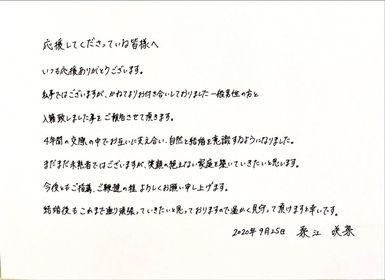 応援してくださっている皆様へ
いつも応援ありがとうございます。
私事ではございますが、かねてよりお付き合いしておりました一般男性の方と
入籍致しました事をご報告させて頂きます。
4年間の交際の中でお互いに支え合い、自然と結婚を意識するようになりました。
まだまだ未熟者ではございますが、笑顔の絶えない家庭を築いていきたいと思います。
今後ともご指導、ご鞭撻の程 よろしくお願い申し上げます。
結婚後もこれまで通り頑張っていきたいと思っておりますので温かく見守って頂けますと幸いです。
2020年9月25日 桑江 咲菜